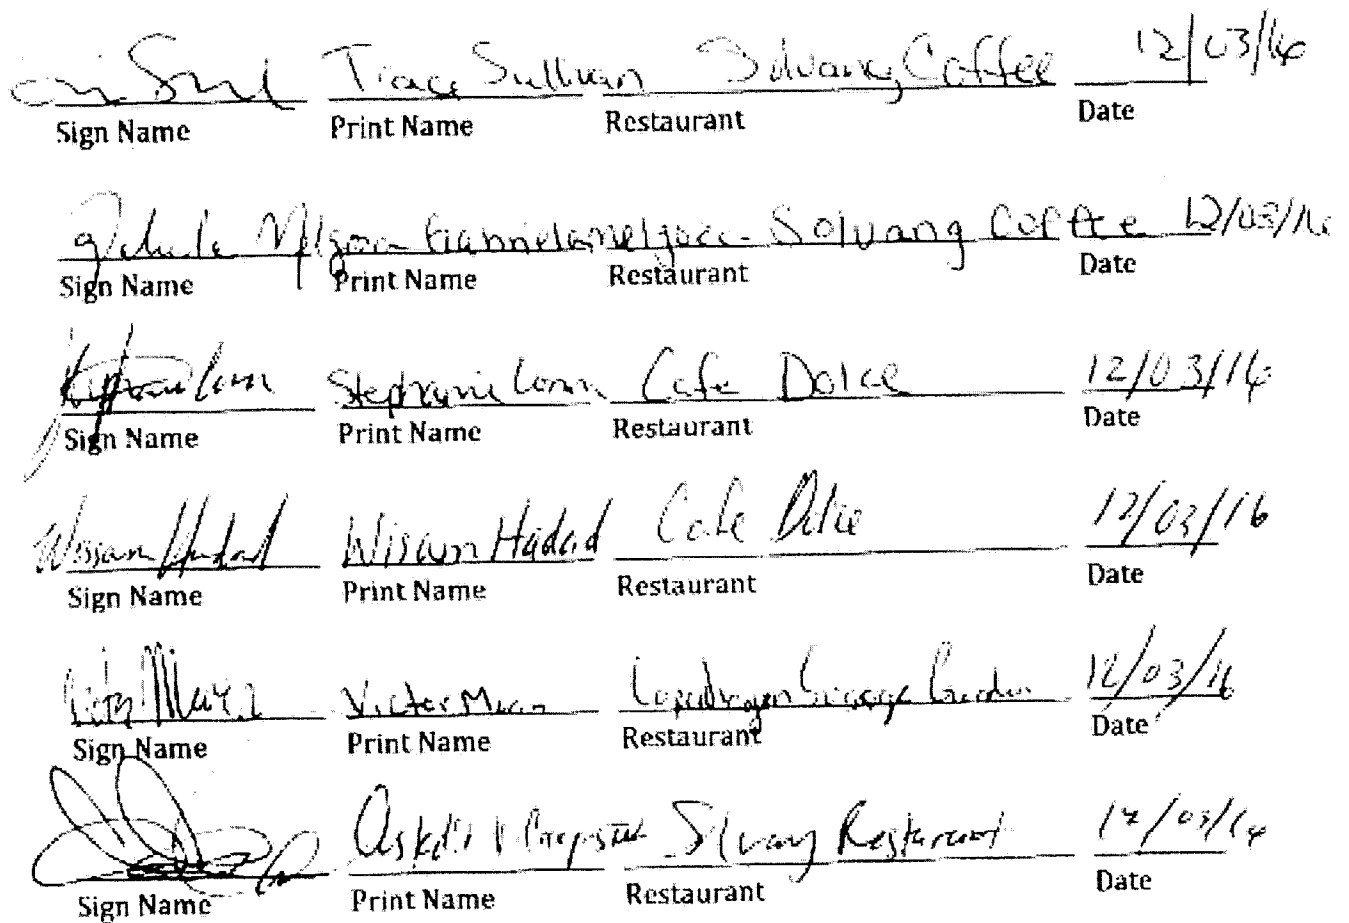 Trace Sullivan Solvang Coffee 12/03/16
Sign Name Print Name Restaurant Date
Gabriela Melgoza Solvang Coffee 12/03/16
Sign Name Print Name Restaurant Date
Stephanie Cafe Dolce 12/03/16
Sign Name Print Name Restaurant Date
Wissam Hadad Wissam Hadad Cafe Dolce 12/03/16
Sign Name Print Name Restaurant Date
Victor Copenhagen Sausage Garden 12/03/16
Sign Name Print Name Restaurant Date
Solvang Restaurant 12/03/16
Sign Name Print Name Restaurant Date